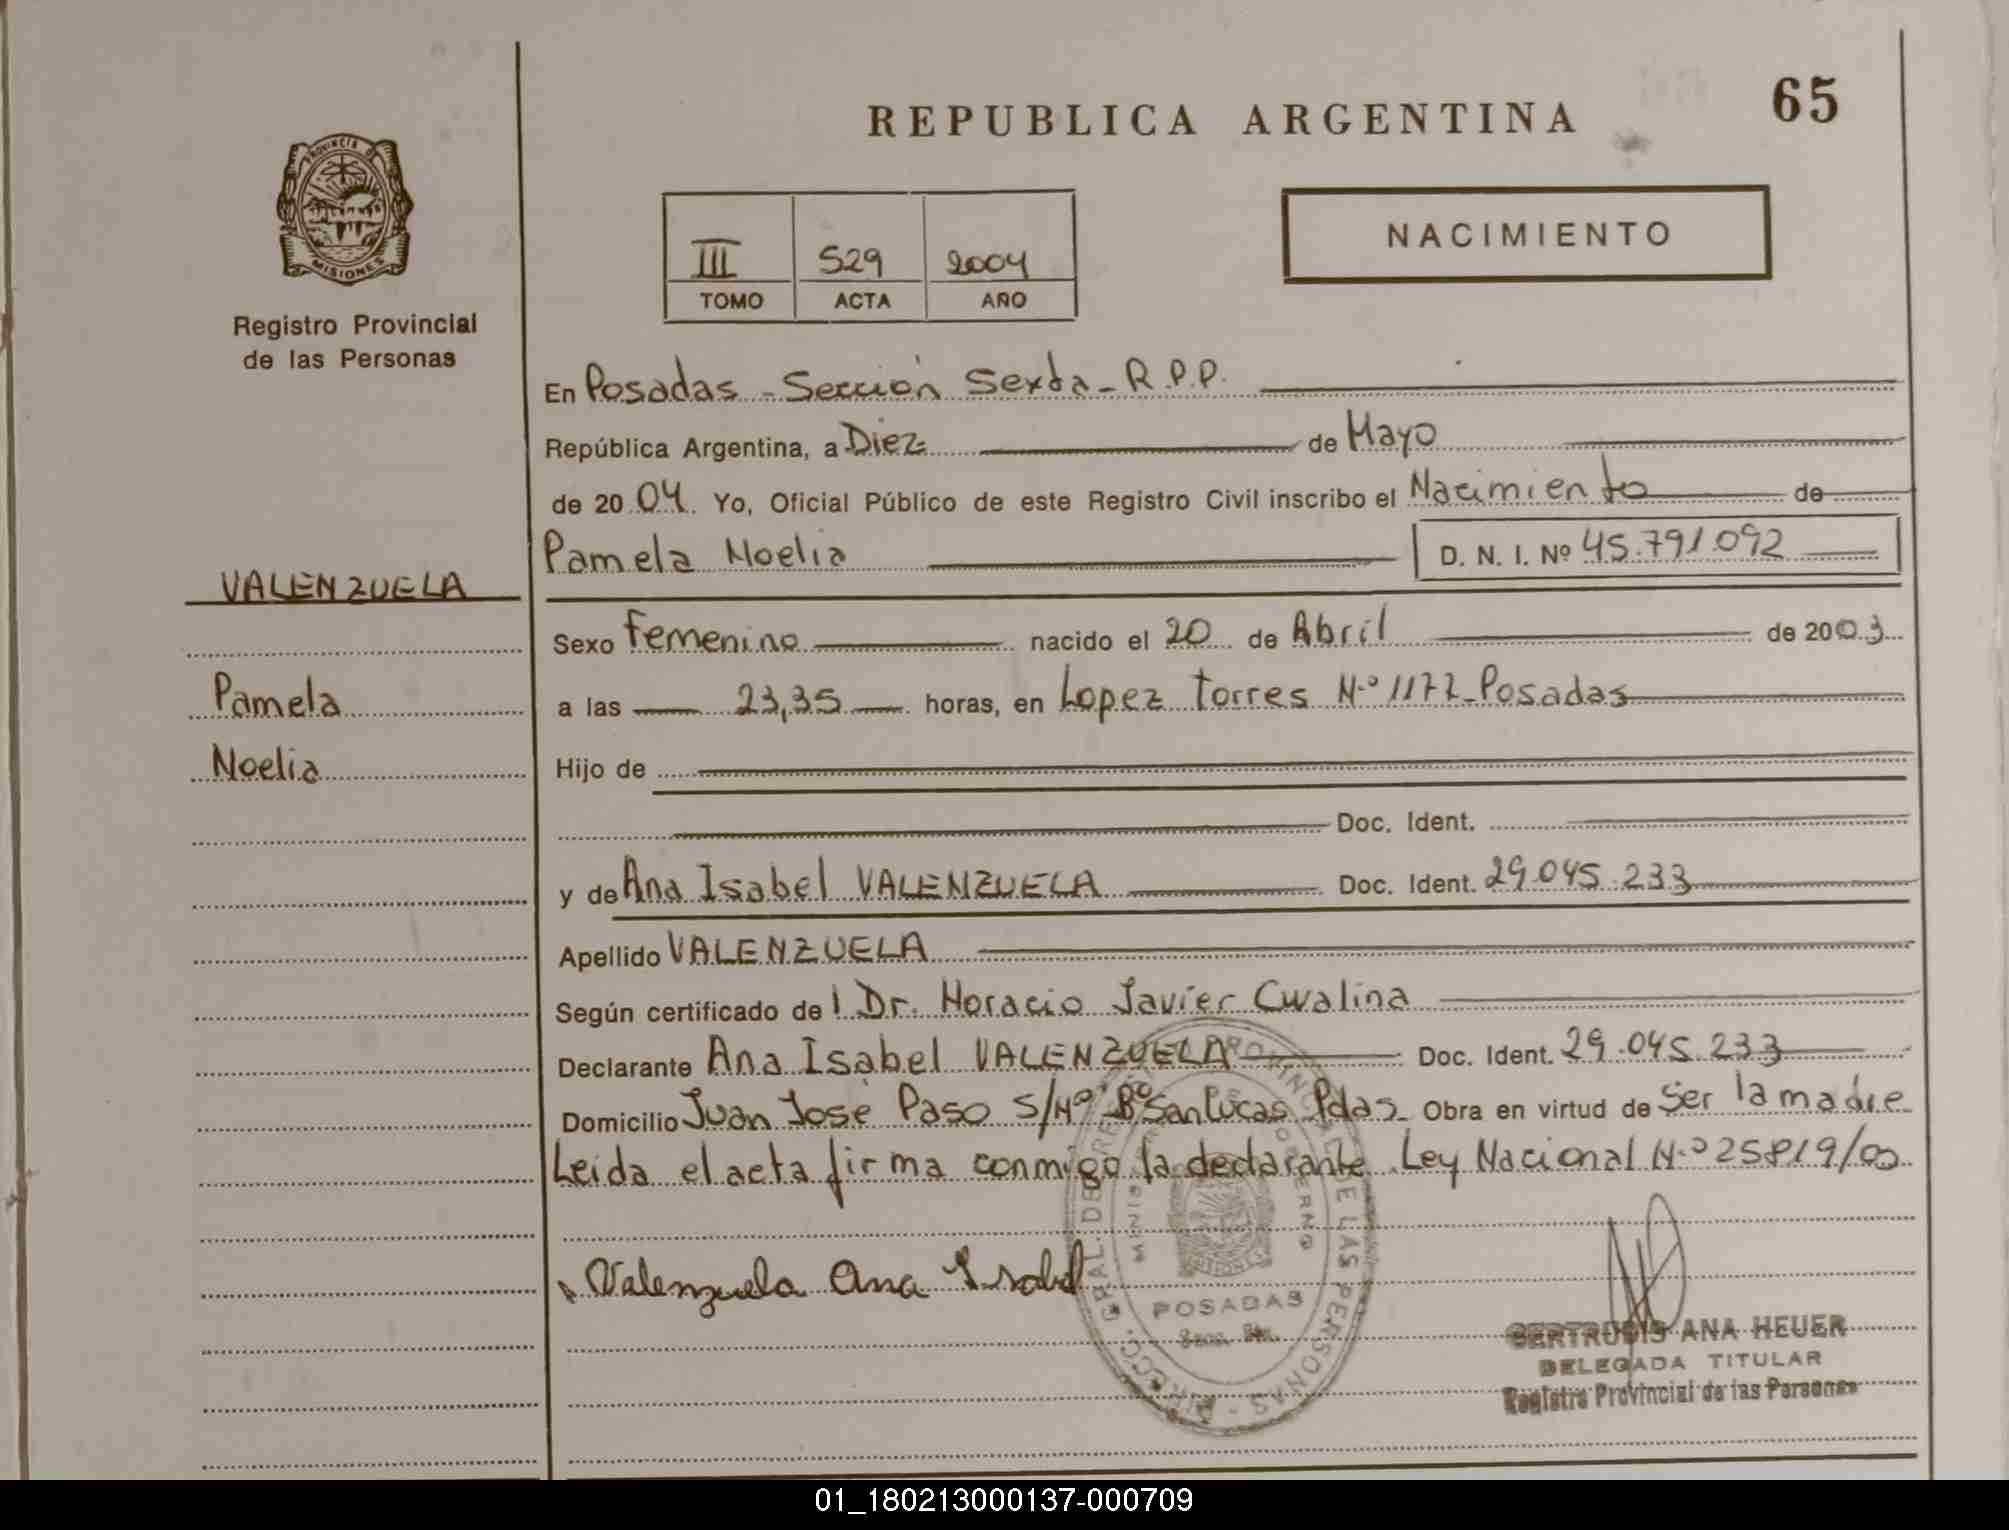 REPUBLICA ARGENTINA
65
PROVINCIA DE
MISIONES
Registro Provincial
de las Personas
III 529 2004
TOMO ACTA AÑO
NACIMIENTO
En Posadas - Sección Sexta - R.P.P.
República Argentina, a Diez de Mayo
de 20 04 Yo, Oficial Público de este Registro Civil inscribo el Nacimiento de
Pamela Noelia D. N. I. Nº 45.791.092
VALENZUELA
Pamela
Noelia
Sexo Femenino nacido el 20 de Abril de 2003
a las 23,35 horas, en Lopez Torres N.º 1177 - Posadas
Hijo de
Doc. Ident.
y de Ana Isabel VALENZUELA Doc. Ident. 29.045.233
Apellido VALENZUELA
Según certificado de l Dr. Horacio Javier Cwalina
Declarante Ana Isabel VALENZUELA Doc. Ident. 29.045.233
Domicilio Juan José Paso S/Nº Bº San Lucas Pdas. Obra en virtud de Ser la madre
Leida el acta firma conmigo la declarante. Ley Nacional N.º 25819/03
Valenzuela Ana Isabel
POSADAS
GERTRUDIS ANA HEUER
DELEGADA TITULAR
Registro Provincial de las Personas
01_180213000137-000709